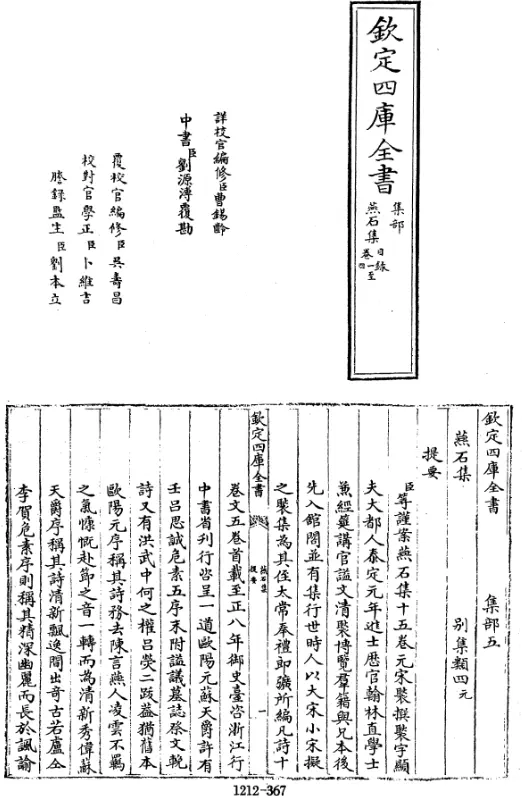 欽定四庫全書
集部
燕石集
目錄
卷一至
四
詳校官編修臣曹錫齡
中書臣劉源溥覆勘
覆校官編修臣吳壽昌
校對官學正臣卜維吉
謄錄監生臣劉本立
欽定四庫全書 集部五
燕石集 別集類四元
提要
臣等謹案燕石集十五卷元宋褧撰褧字顯
夫大都人泰定元年進士歷官翰林直學士
兼經筵講官謚文清褧博覽羣籍與兄本後
先入館閣並有集行世時人以大宋小宋擬
之褧集為其侄太常奉禮郎彍所編凡詩十
欽定四庫全書
燕石集
提要
一
卷文五卷首載至正八年御史臺咨浙江行
中書省刊行咨呈一道歐陽元蘇天爵許有
壬呂思誠危素五序末附謚議墓誌祭文輓
詩又有洪武中何之權呂熒二跋葢猶舊本
歐陽元序稱其詩務去陳言燕人凌雲不羈
之氣慷慨赴節之音一轉而為清新秀偉蘇
天爵序稱其詩清新飄逸間出奇古若盧仝
李賀危素序則稱其精深幽麗而長於諷諭
1212-367